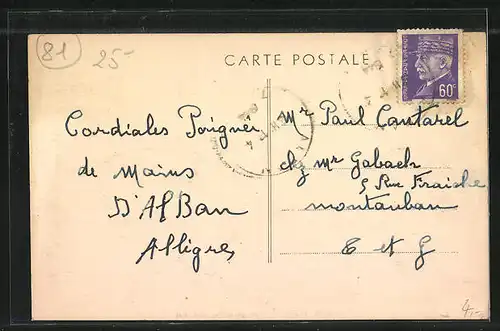 81
25-
CARTE POSTALE
60c
Cordiales Poignes
de Mains
D'Alban
Alligre
Mr Paul Cantarel
chez Mr Gabach
5 Rue Fraiche
Montauban
T et G
4.-